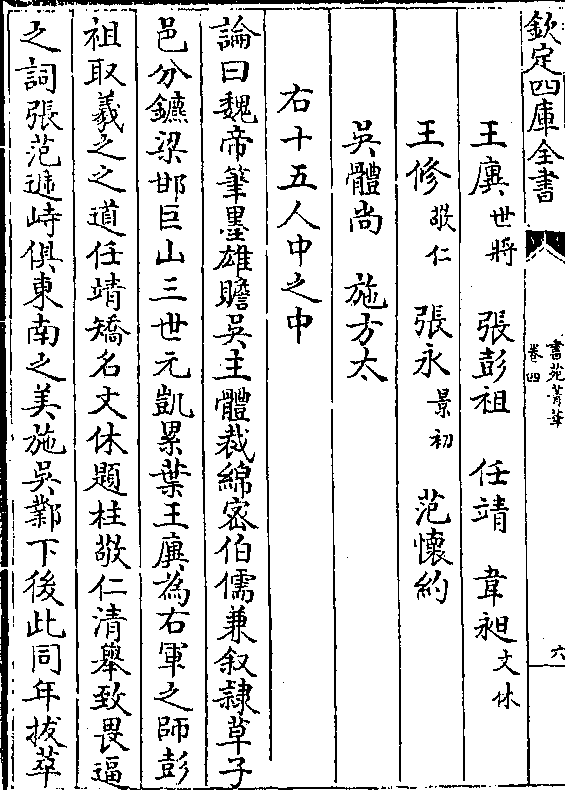 欽定四庫全書
書苑菁華
卷四
六
王廙世將 張彭祖 任靖 韋昶文休
王修敬仁 張永景初 范懷約
吳體尚 施方太
右十五人中之中
論曰魏帝筆墨雄贍吳主體裁綿密伯儒兼叙隷草子
邑分鑣梁邯巨山三世元凱累葉王廙為右軍之師彭
祖取羲之之道任靖矯名文休題柱敬仁清舉致畏逼
之詞張范逓峙俱東南之美施吳鄴下後此同年拔萃